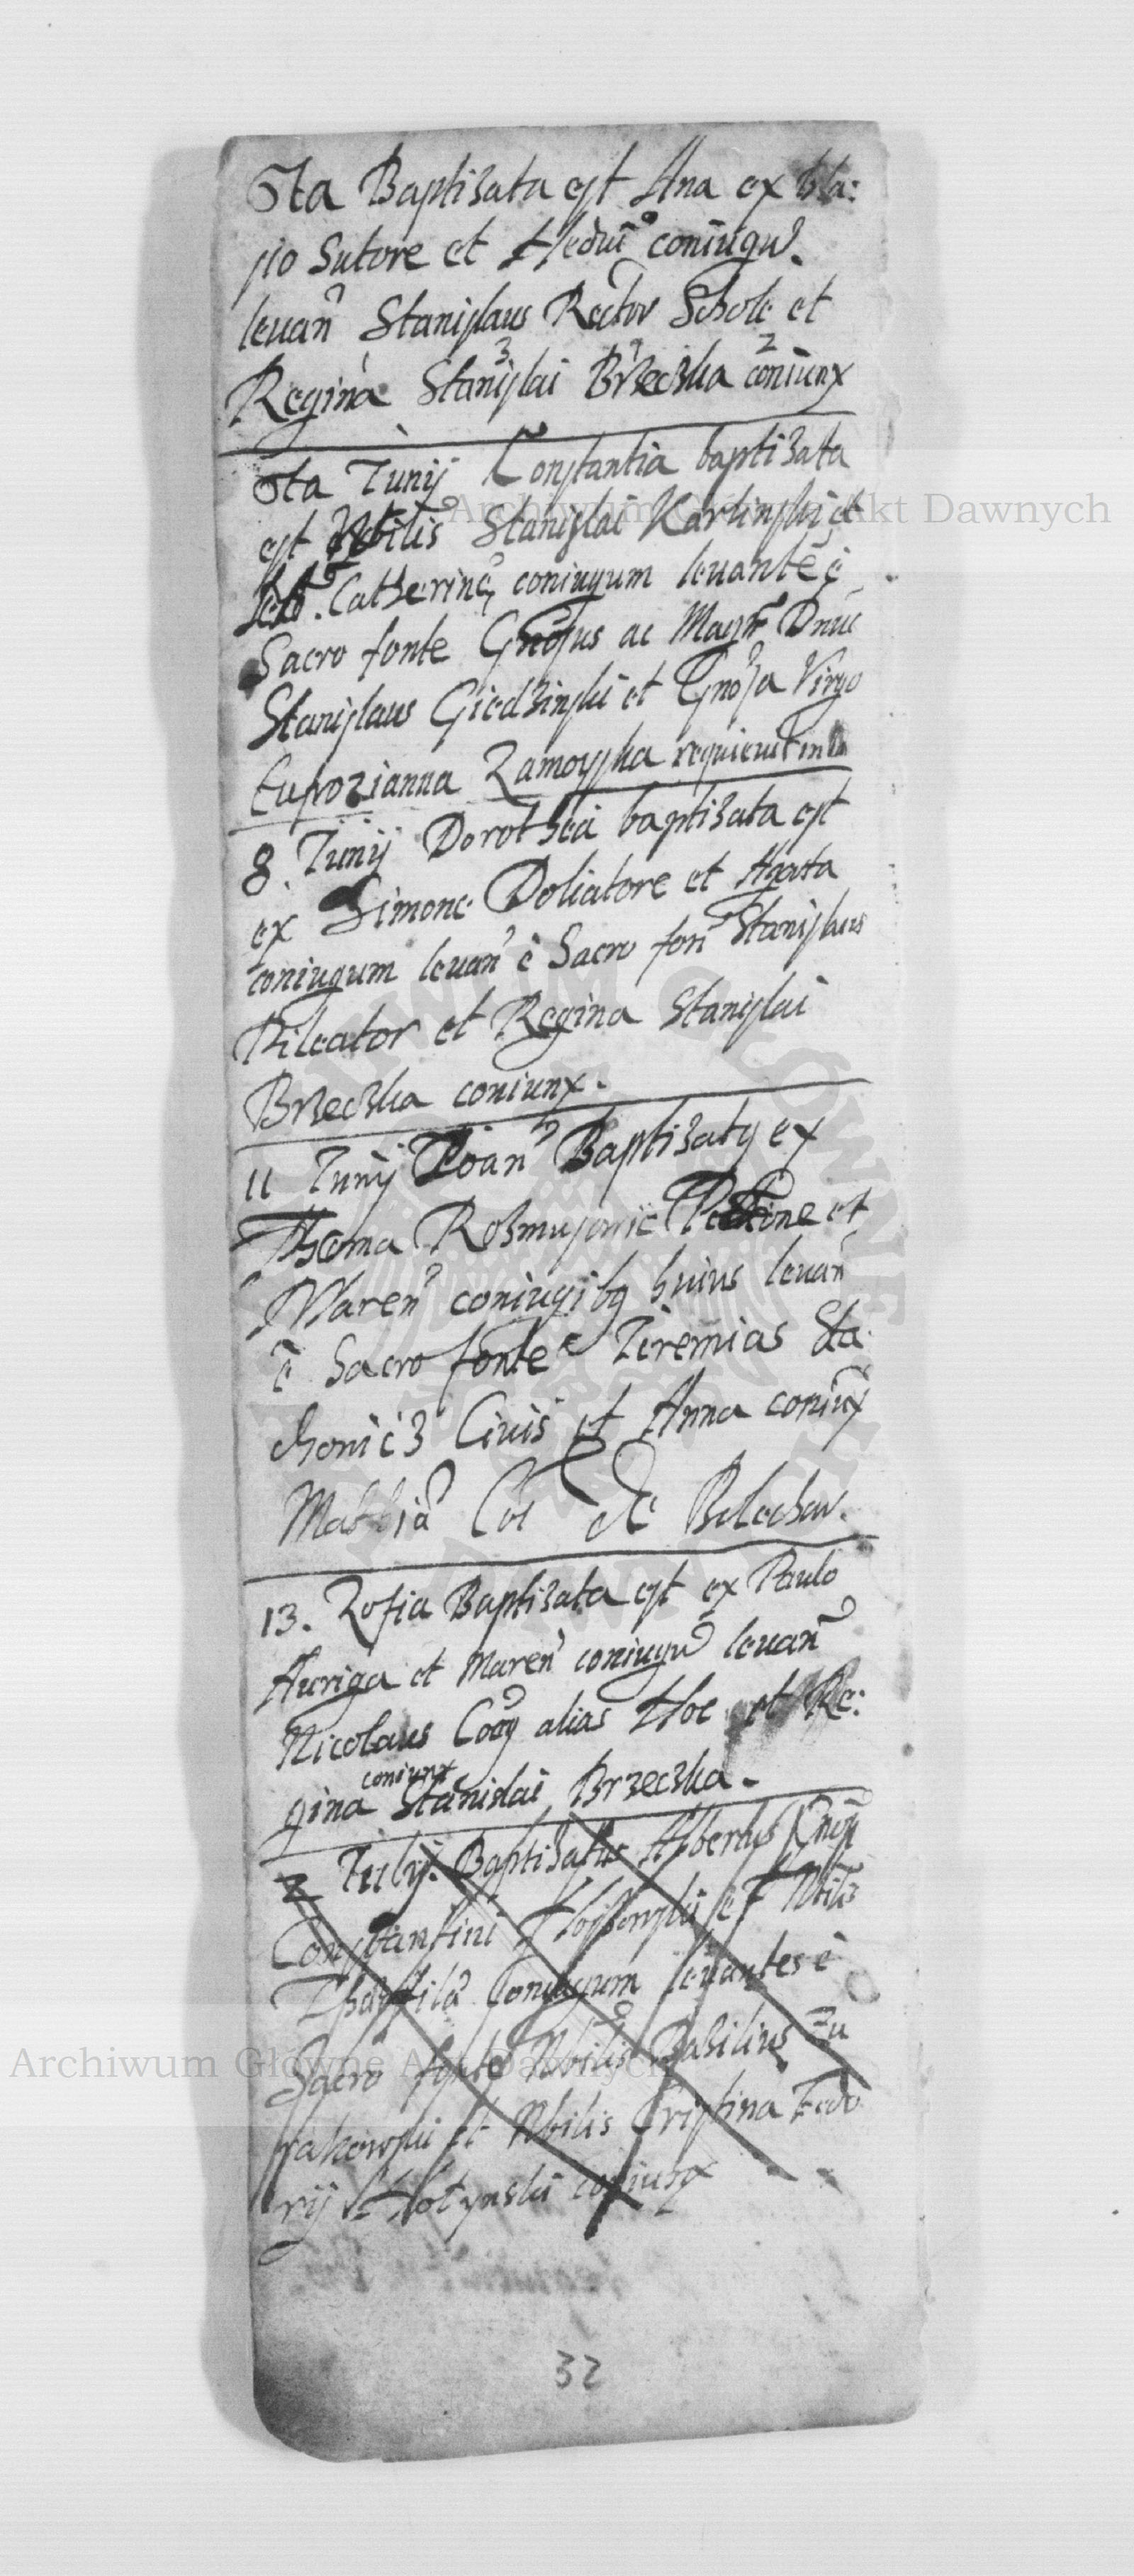 Ita Baptizata est Ana ex Bla:
sio Sutore et Hedui coniugu.
leuan Stanislaus Rector Schole et
Regina Stanislai Brzeczka coniunx
Ita Iunij Constantia baptizata
est Nobilis Stanislai Karlinski et
Catherine coniugum leuante è
Sacro fonte Gnosus ac Magn Dnus
Stanislaus Giedzinski et Gnosa Virgo
Eufrozianna Zamoyska requieuit in
8. Iunij Dorothea baptizata est
ex Simone Doliatore et Agata
coniugum leuan è Sacro fon Stanislaus
Pileator et Regina Stanislai
Brzeczka coniunx.
11 Iunij Ioan Baptizaty ex
Thoma et
Maren coniugibq huius leuan
è Sacro fonte Ieremias Sta:
chonicz Ciuis et Anna coniux
Matthia de Belechow.
13. Zofia Baptizata est ex Paulo
Auriga et Maren coniugu leuan
Nicolaus Cocy alias Hoc et Re:
coniunx
gina Stanislai Brzeczka.
2 Iulij. Baptizatus Albertus
Constantini et Nbilis
coniugum leuantes è
Sacro fonte Nbilis Basilius Zu
rakowski et Nbilis Cristina Teodo
rij Hotynski coniunx
32
Archiwum Główne Akt Dawnych
Archiwum Główne Akt Dawnych